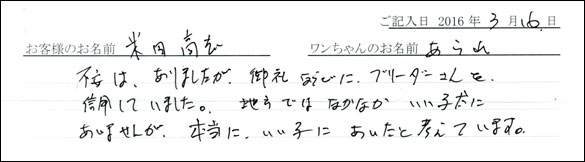 ご記入日 2016 年 3 月 16 日
お客様のお名前 米田 高志 ワンちゃんのお名前 あられ
不安は、ありましたが、御礼 などに、ブリーダーさんを、
信用していました。地方では なかなか いい子犬に
あいませんが、本当に、いい子に あいたと考えています。